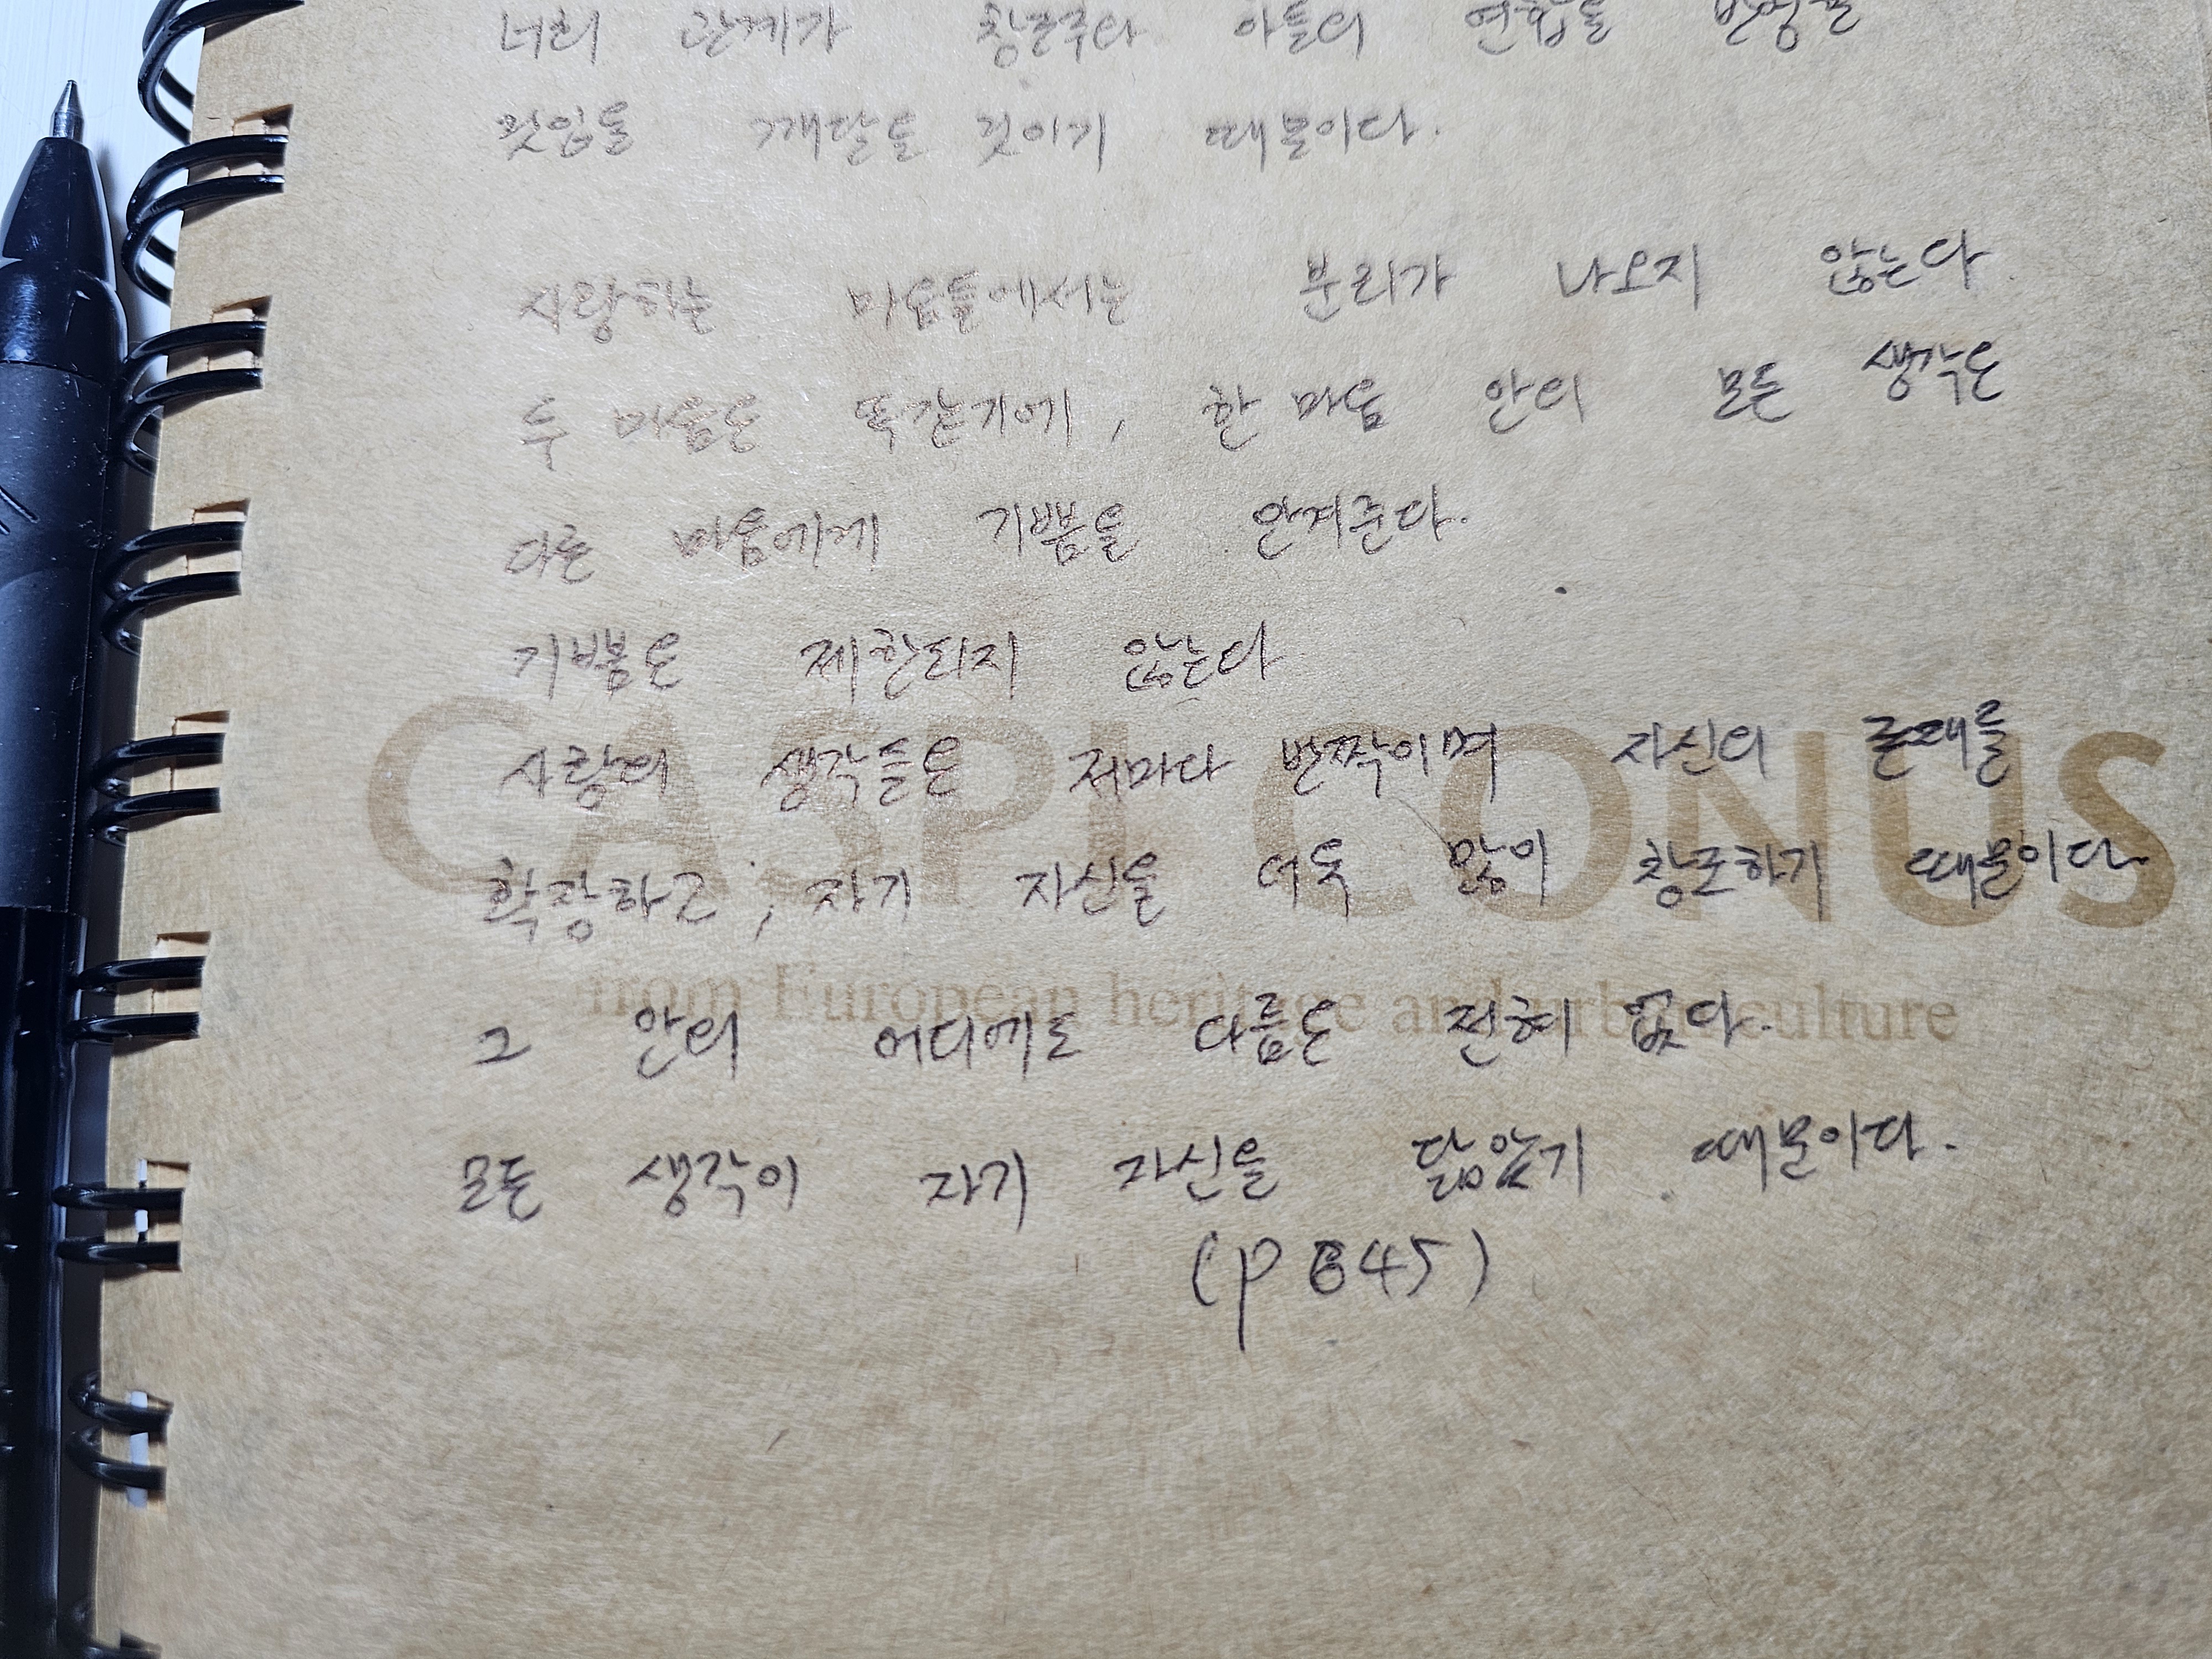 너희 관계가 창조주와 아들의 연합을 반영한
것임을 깨달을 것이기 때문이다.
사랑하는 마음들에서는 분리가 나오지 않는다.
두 마음은 똑같기에, 한 마음 안의 모든 생각은
다른 마음에게 기쁨을 안겨준다.
기쁨은 제한되지 않는다
사랑의 생각들은 저마다 반짝이며 자신의 존재를
확장하고; 자기 자신을 더욱 많이 창조하기 때문이다.
그 안의 어디에도 다름은 전혀 없다.
모든 생각이 자기 자신을 닮았기 때문이다.
(P 645)
CASPI CONUS
from European heritage and urban culture